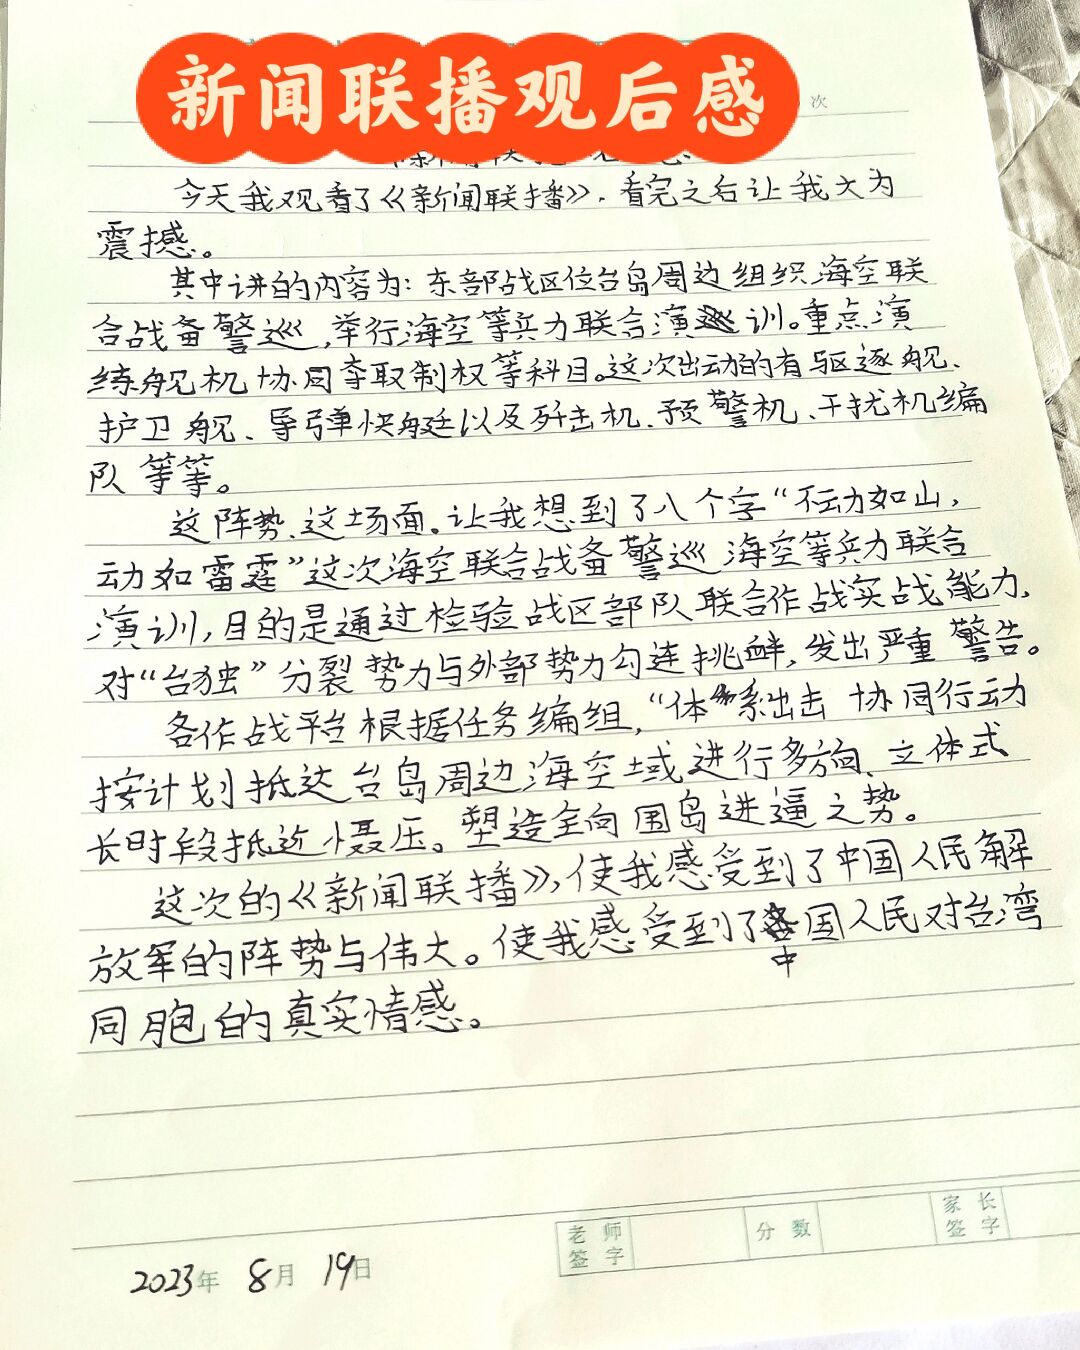 新闻联播观后感
次
今天我观看了《新闻联播》．看完之后让我大为
震撼。
其中讲的内容为：东部战区位台岛周边组织海空联
合战备警巡,举行海空等兵力联合演训。重点演
练舰机协同夺取制权等科目。这次出动的有驱逐舰、
护卫舰、导弹快艇以及歼击机、预警机、干扰机编
队等等。
这阵势、这场面。让我想到了八个字“不动如山，
动如雷霆”这次海空联合战备警巡 海空等兵力联合
演训，目的是通过检验战区部队联合作战实战能力，
对“台独”分裂势力与外部势力勾连挑衅，发出严重警告。
各作战平台根据任务编组，“体系出击 协同行动
按计划抵达台岛周边海空域进行多方向、立体式
长时段抵近慑压。塑造全向围岛进逼之势。
这次的《新闻联播》，使我感受到了中国人民解
放军的阵势与伟大。使我感受到了中国人民对台湾
同胞的真实情感。
老师签字 分数 家长签字
2023年 8月 19日